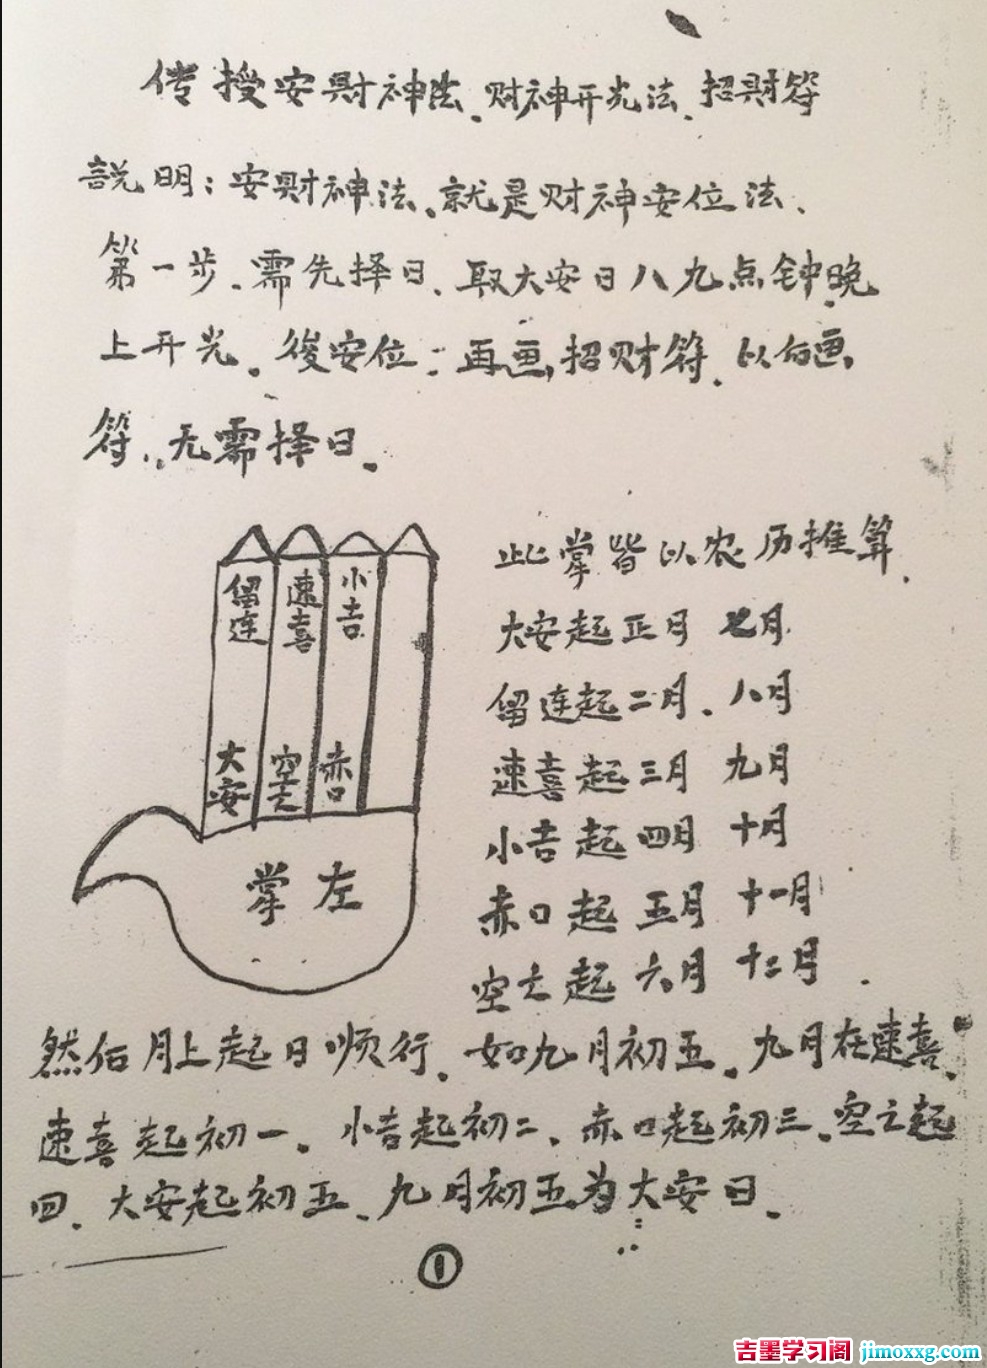 传授安財神法、财神开光法、招財符
説明:安財神法、就是财神安位法、
第一步、需先择日、取大安日八九点钟晚
上开光。後安位:再画,招财符、以后画
符、无需择日。
留连 速喜 小吉
大安 空亡 赤口
掌左
此掌皆以农历推算、
大安起正月 七月
留连起二月、八月
速喜起三月 九月
小吉起四月 十月
赤口起五月 十一月
空亡起六月 十二月.
然后月上起日顺行、如九月初五、九月在速喜、
速喜起初一、小吉起初二、赤口起初三、空亡起
四、大安起初五、九月初五为大安日、
①
吉墨学习阁 jimoxxg.com